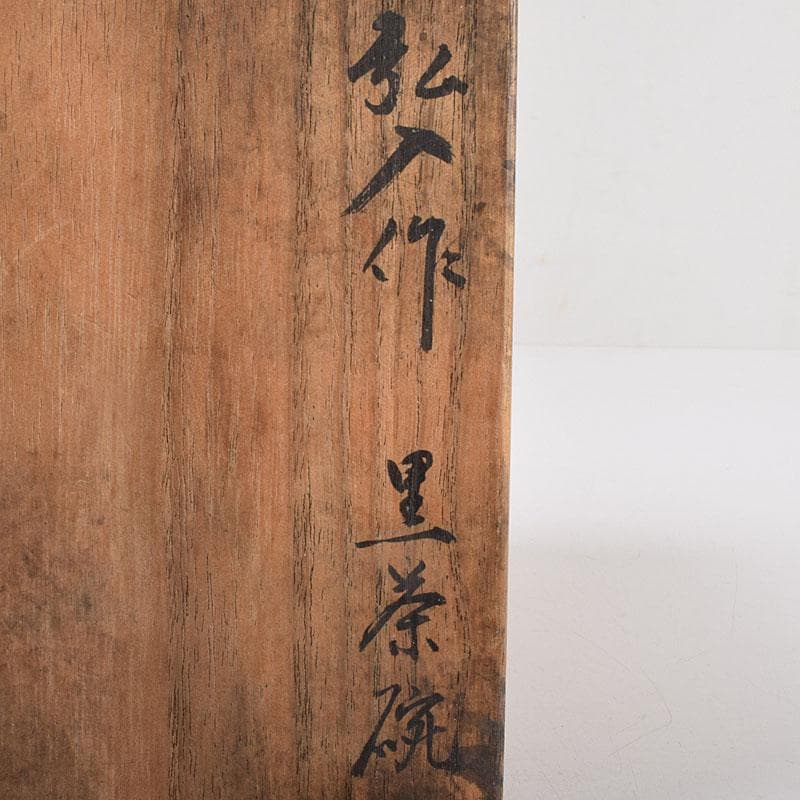 弘入作 黒茶碗